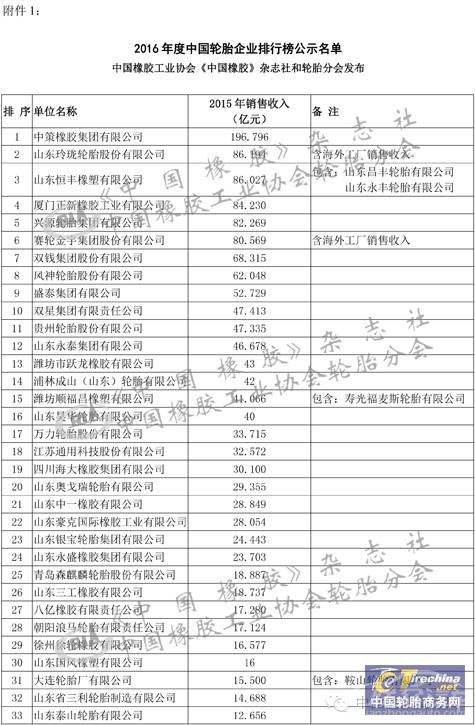 附件 1：
2016 年度中国轮胎企业排行榜公示名单
中国橡胶工业协会《中国橡胶》杂志社和轮胎分会发布
排 序 单位名称 2015 年销售收入（亿元） 备 注
1 中策橡胶集团有限公司 196.796
2 山东玲珑轮胎股份有限公司 86.194 含海外工厂销售收入
3 山东恒丰橡塑有限公司 86.027 包含：山东昌丰轮胎有限公司
山东永丰轮胎有限公司
4 厦门正新橡胶工业有限公司 84.230
5 兴源轮胎集团有限公司 82.269
6 赛轮金宇集团股份有限公司 80.569 含海外工厂销售收入
7 双钱集团股份有限公司 68.315
8 风神轮胎股份有限公司 62.048
9 盛泰集团有限公司 52.729
10 双星集团有限责任公司 47.413
11 贵州轮胎股份有限公司 47.335
12 山东永泰集团有限公司 46.678
13 潍坊市跃龙橡胶有限公司 43
14 浦林成山（山东）轮胎有限公司 42
15 潍坊顺福昌橡塑有限公司 41.066 包含：寿光福麦斯轮胎有限公司
16 山东昊华轮胎有限公司 40
17 万力轮胎股份有限公司 33.715
18 江苏通用科技股份有限公司 32.572
19 四川海大橡胶集团有限公司 30.100
20 山东奥戈瑞轮胎有限公司 29.355
21 山东中一橡胶有限公司 28.849
22 山东豪克国际橡胶工业有限公司 28.054
23 山东银宝轮胎集团有限公司 24.443
24 山东永盛橡胶集团有限公司 23.703
25 青岛森麒麟轮胎股份有限公司 18.887
26 山东三工橡胶有限公司 18.737
27 八亿橡胶有限责任公司 17.280
28 朝阳浪马轮胎有限责任公司 17.124
29 徐州徐轮橡胶有限公司 16.577
30 山东国风橡塑有限公司 16
31 大连轮胎厂有限公司 15.500 包含：鞍山轮胎
32 山东省三利轮胎制造有限公司 14.688
33 山东泰山轮胎有限公司 12.656
《中国橡胶》杂志社
中国橡胶工业协会轮胎分会
中国轮胎商务网